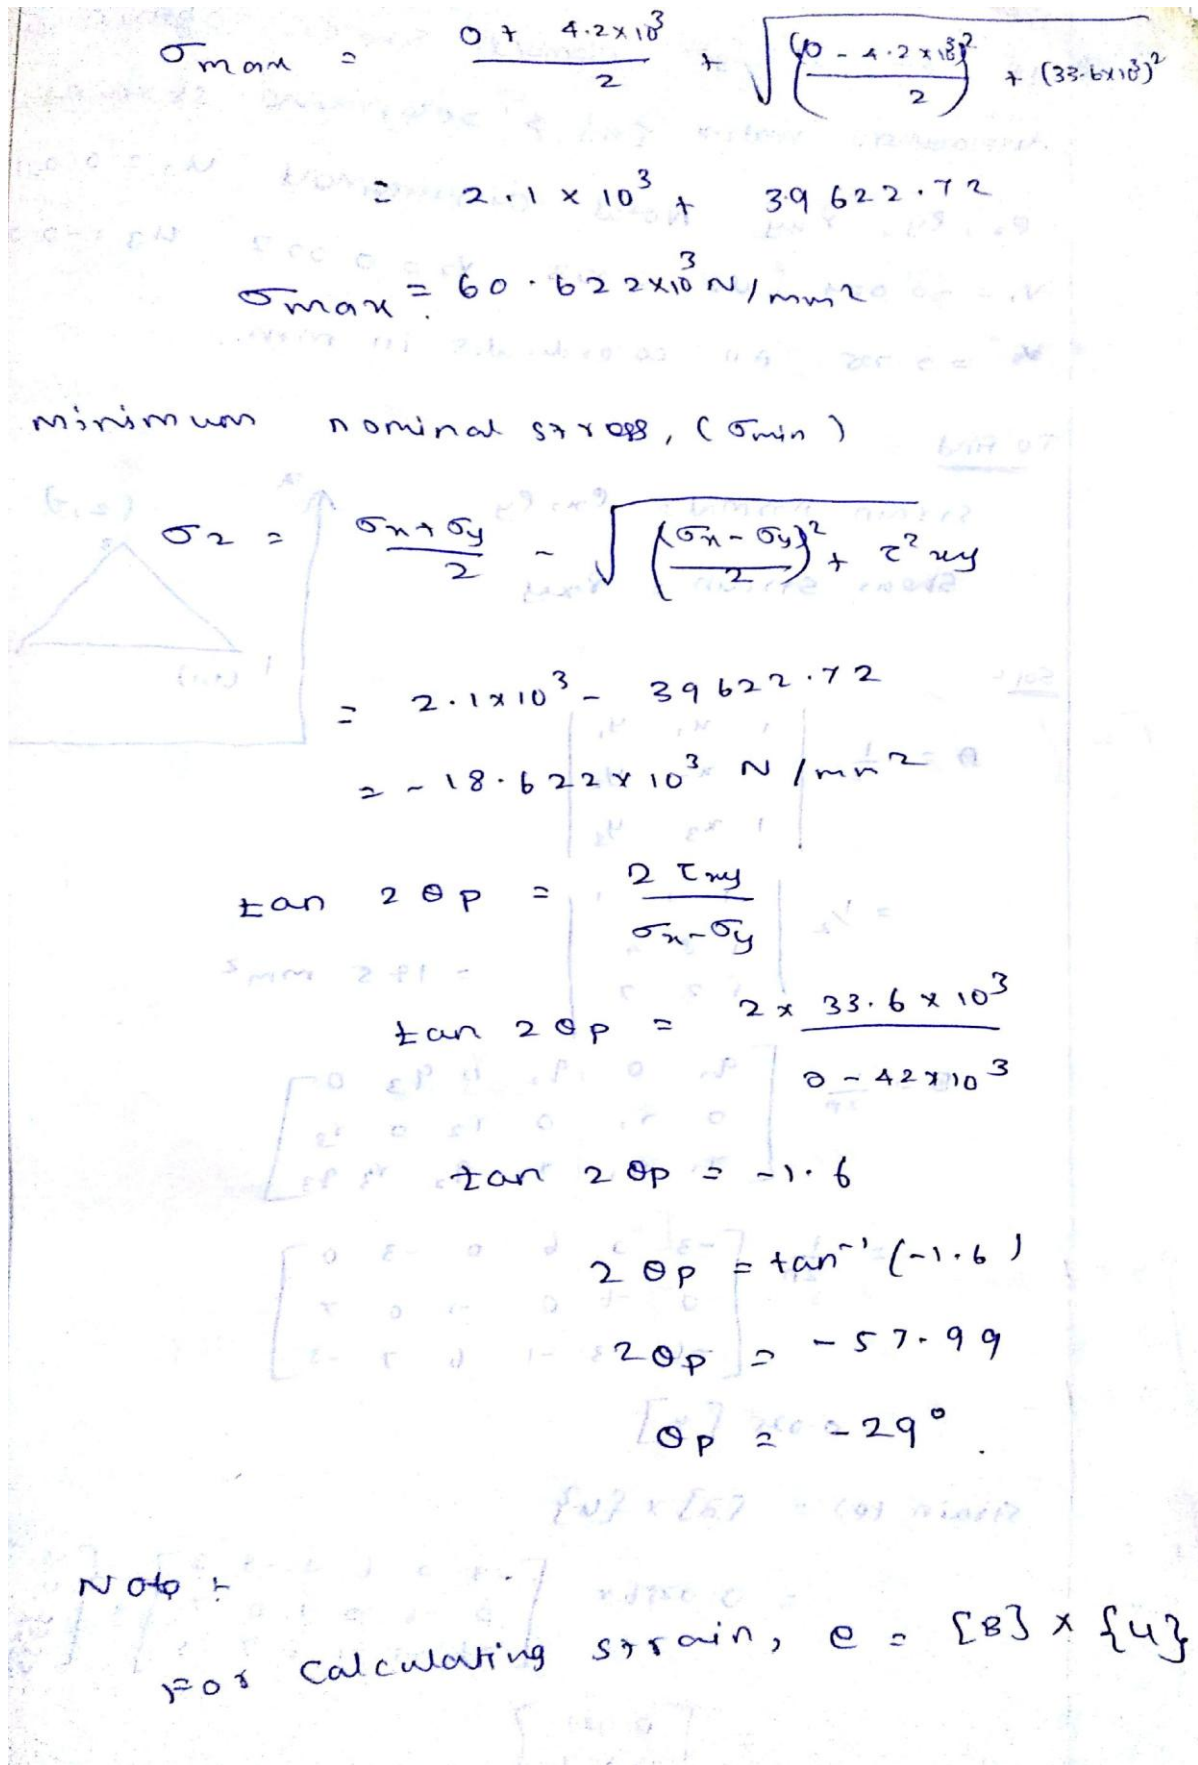 σmax = 0 + 4.2×10³ / 2 + √((0 - 4.2×10³ / 2)² + (33.6×10³)²)
= 2.1 × 10³ + 39622.72
σmax = 60.622×10³ N/mm²
minimum nominal stress, (σmin)
σ2 = σx+σy / 2 - √((σx-σy / 2)² + τ²xy)
= 2.1×10³ - 39622.72
= -18.622×10³ N/mm²
tan 2θp = 2 τxy / σx-σy
tan 2θp = 2× 33.6×10³ / 0 - 42×10³
tan 2θp = -1.6
2θp = tan⁻¹(-1.6)
2θp = -57.99
θp = -29°.
Note :-
For calculating strain, e = [B] × {u}